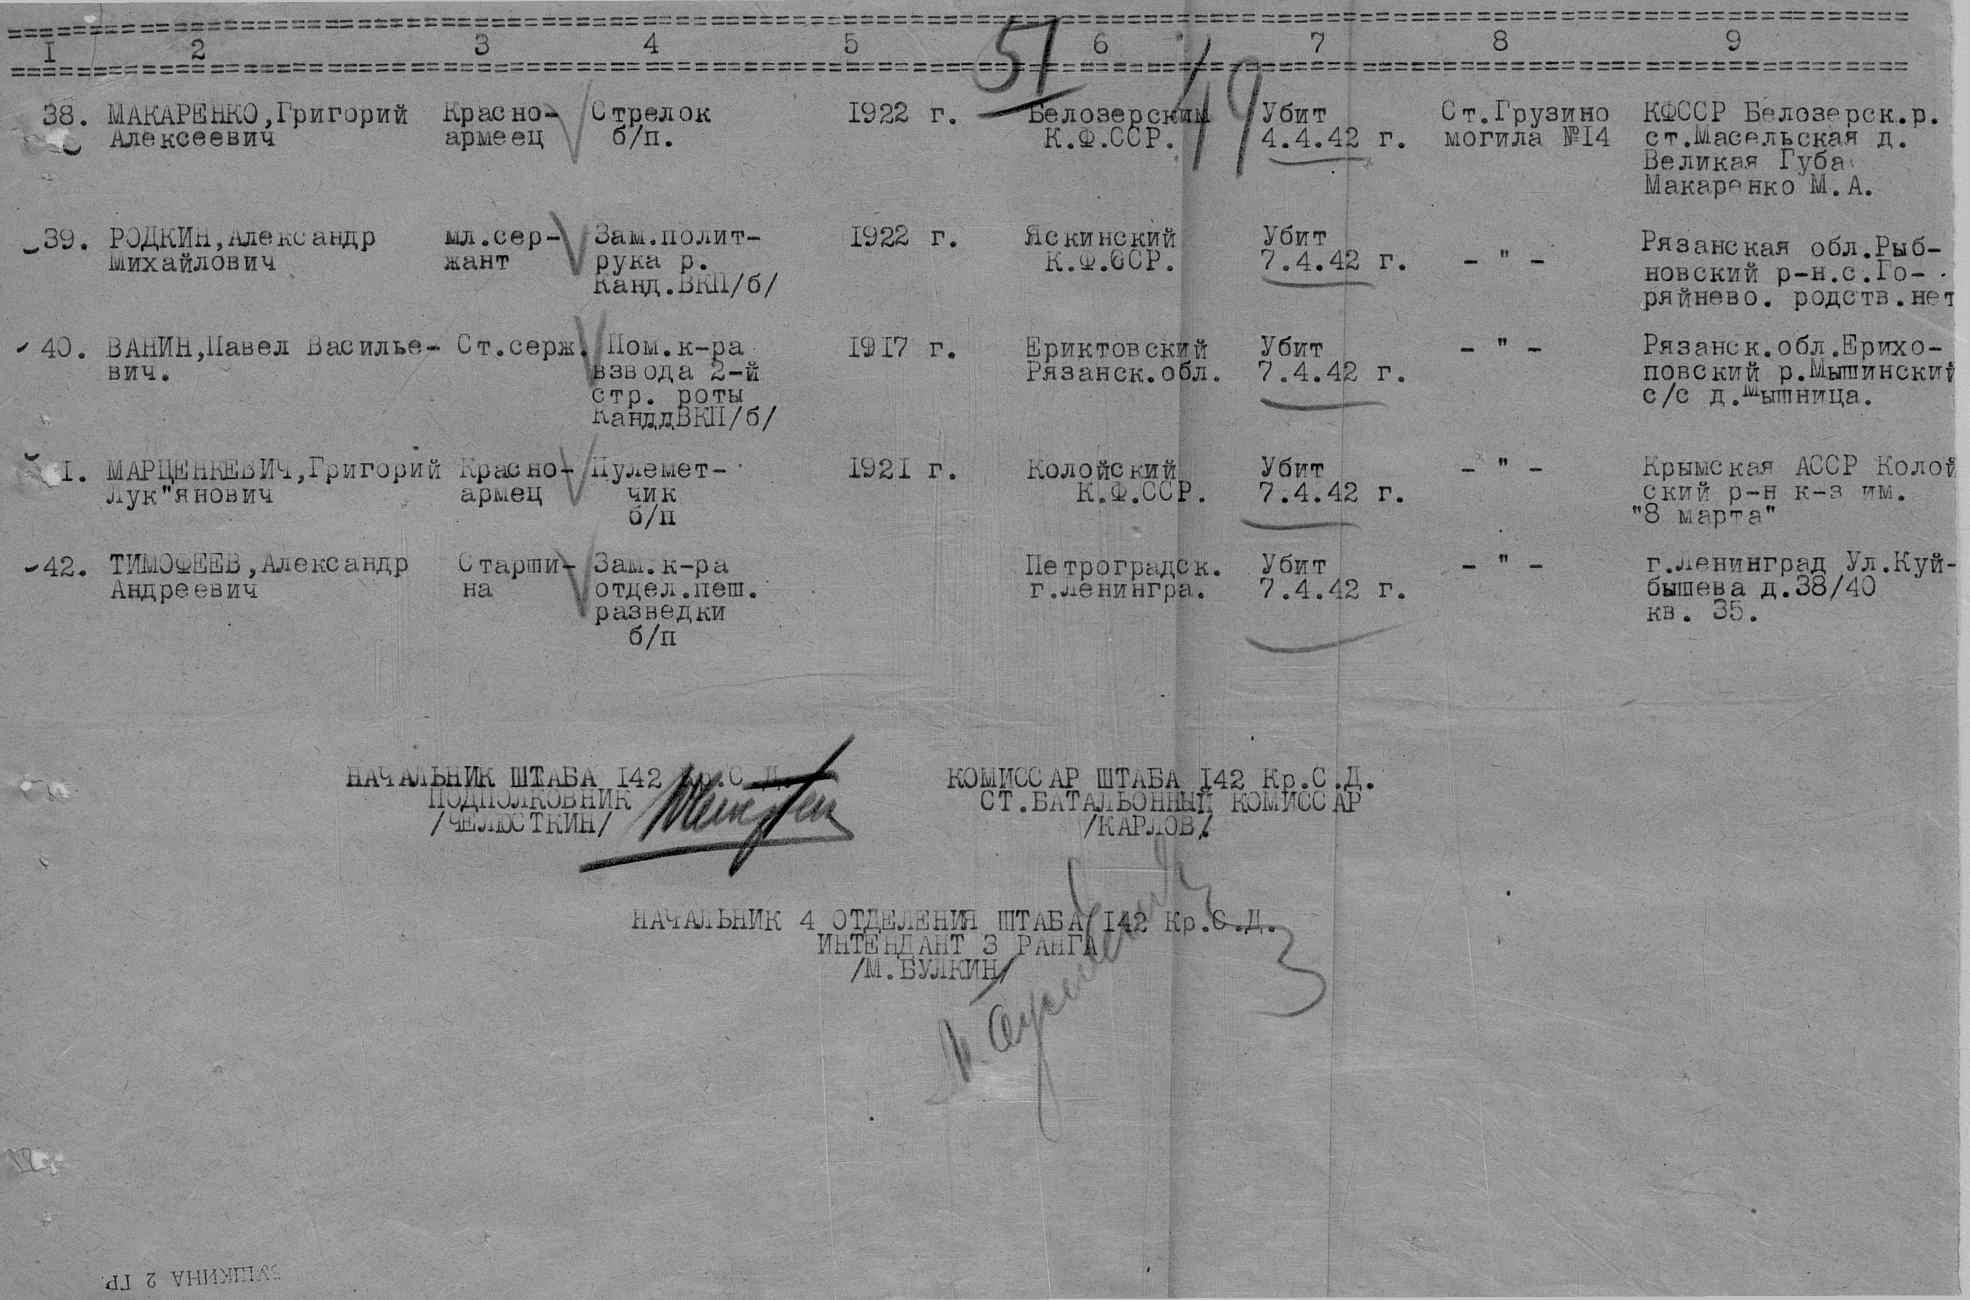 I 2 3 4 5 6 7 8 9
51
49
38. МАКАРЕНКО,Григорий Красно- Стрелок 1922 г. Белозерским Убит Ст.Грузино КФССР Белозерск.р.
Алексеевич армеец б/п. К.Ф.ССР. 4.4.42 г. могила №I4 ст.Масельская д.
Великая Губа
Макаренко М.А.
39. РОДКИН,Александр мл.сер- Зам.полит- 1922 г. Яскинский Убит Рязанская обл.Рыб-
Михайлович жант рука р. К.Ф.ССР. 7.4.42 г. - " - новский р-н.с.Го-
Канд.ВКП/б/ ряйнево. родств.нет
40. ВАНИН,Павел Василье- Ст.серж. Пом.к-ра 1917 г. Ериктовский Убит - " - Рязанск.обл.Ерихо-
вич. взвода 2-й Рязанск.обл. 7.4.42 г. повский р.Мышинский
стр. роты с/с д.Мышница.
КанддВКП/б/
I. МАРЦЕНКЕВИЧ,Григорий Красно- Пулемет- 1921 г. Колойский Убит - " - Крымская АССР Колой
Лук"янович армец чик К.Ф.ССР. 7.4.42 г. ский р-н к-з им.
б/п "8 марта"
42. ТИМОФЕЕВ,Александр Старши- Зам.к-ра Петроградск. Убит - " - г.Ленинград Ул.Куй-
Андреевич на отдел.пеш. г.Ленингра. 7.4.42 г. бышева д.38/40
разведки кв. 35.
б/п
НАЧАЛЬНИК ШТАБА I42 Кр.С.Д. КОМИССАР ШТАБА I42 Кр.С.Д.
ПОДПОЛКОВНИК СТ.БАТАЛЬОННЫЙ КОМИССАР
/ЧЕЛЮСТКИН/ /КАРЛОВ/
НАЧАЛЬНИК 4 ОТДЕЛЕНИЯ ШТАБА I42 Кр.С.Д.
ИНТЕНДАНТ 3 РАНГА
/М.БУЛКИН/